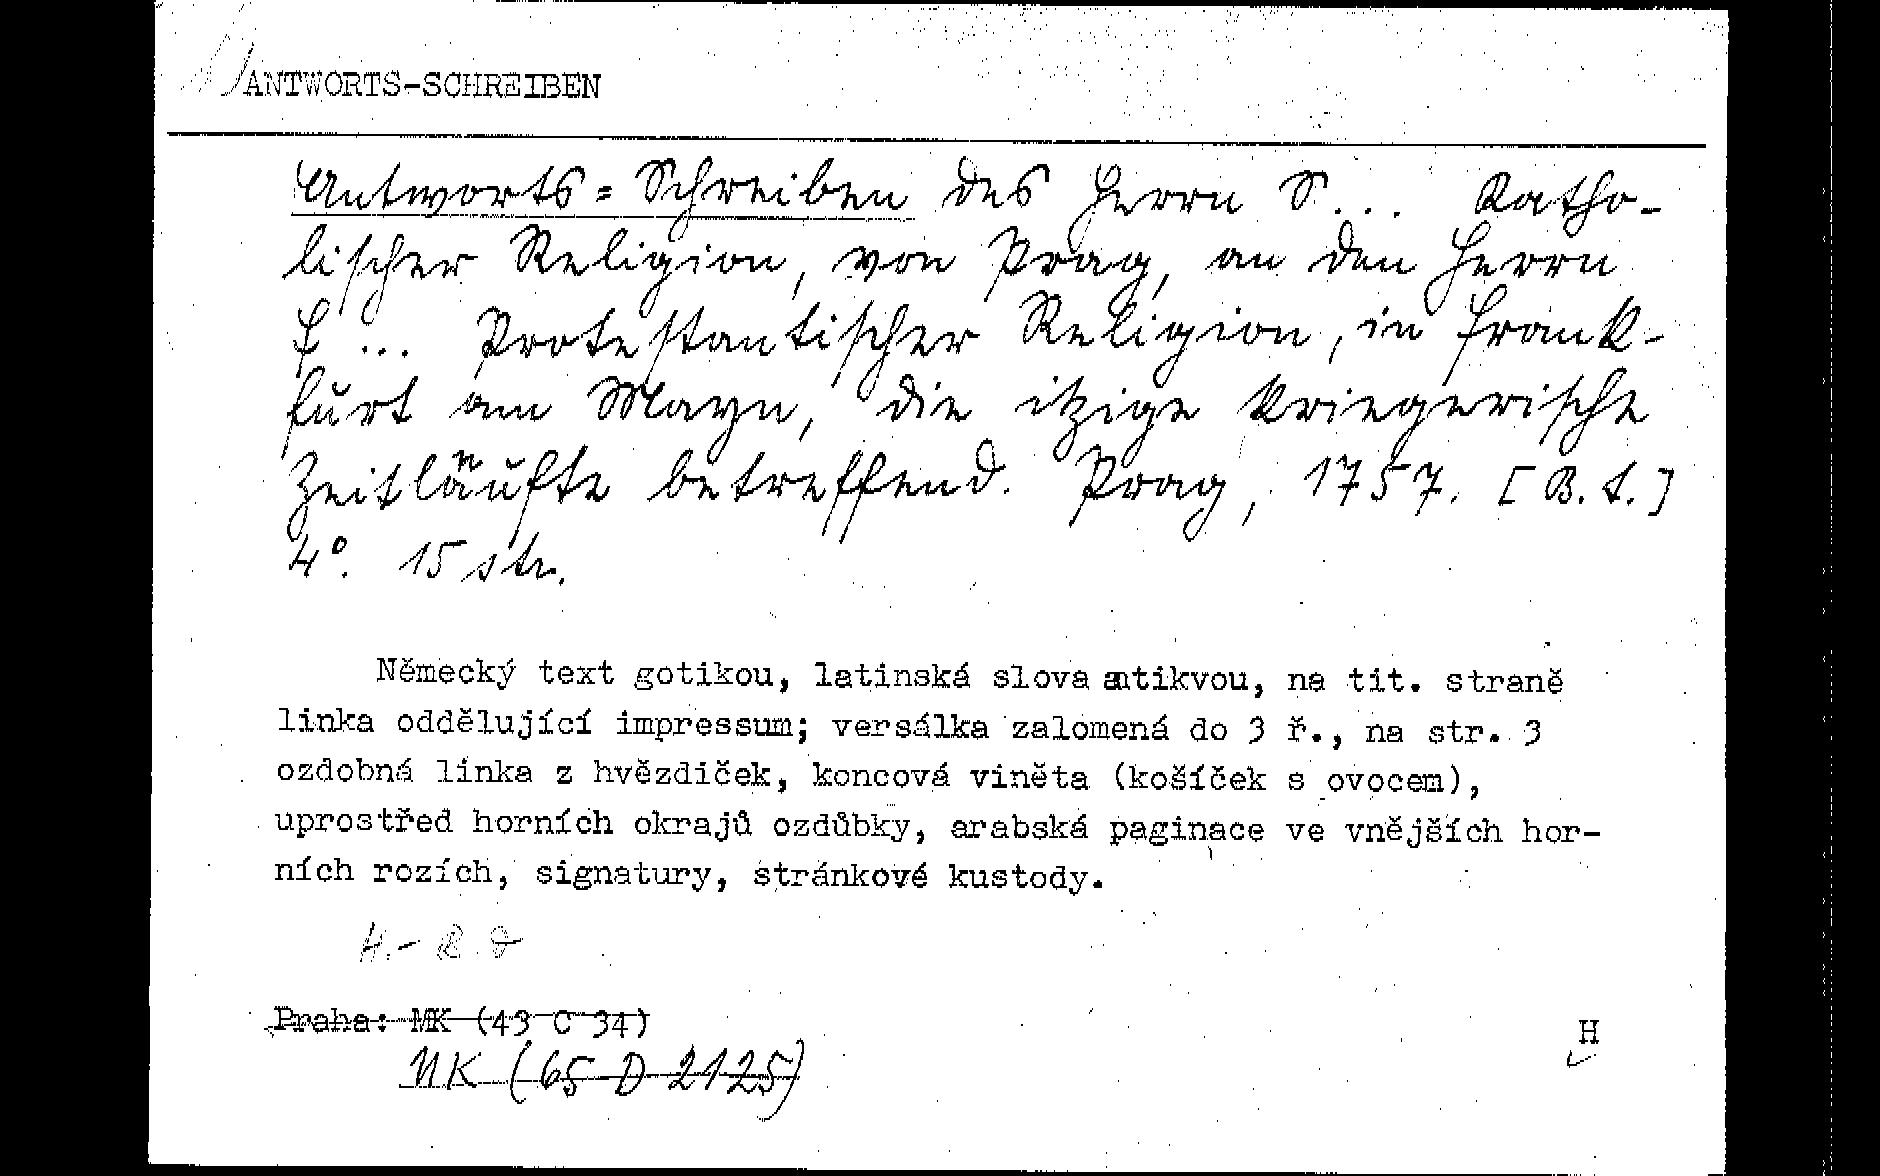 ANTWORTS-SCHREIBEN
Antworts=Schreiben des Herrn S... Katho-
lischer Religion, von Prag, an den Herrn
F... Protestantischer Religion, in Frank-
furt am Mayn, die itzige kriegerische
Zeitläufte betreffend. Prag, 1757. [B.t.]
4°. 15 str.
Německý text gotikou, latinská slova antikvou, na tit. straně
linka oddělující impressum; versálka zalomená do 3 ř., na str. 3
ozdobná linka z hvězdiček, koncová viněta (košíček s ovocem),
uprostřed horních okrajů ozdůbky, arabská paginace ve vnějších hor-
ních rozích, signatury, stránkové kustody.
Praha: MK (43 C 34)
H
NK (65 D 2125)